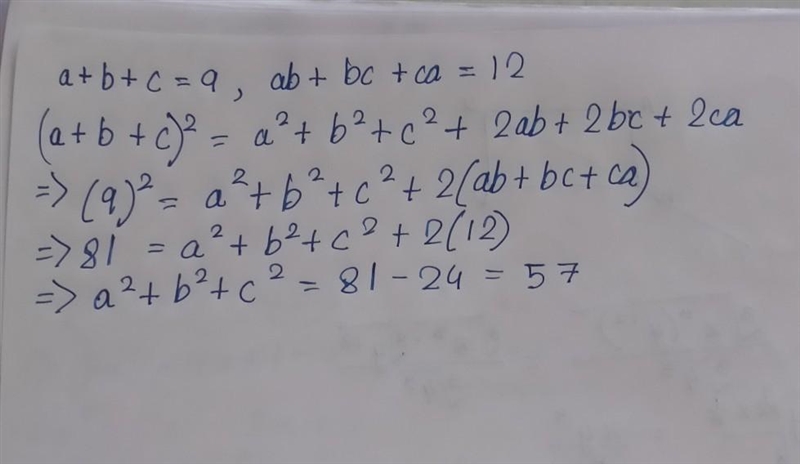 a+b+c = 9, ab + bc + ca = 12
(a+b+c)² = a² + b² + c² + 2ab + 2bc + 2ca
=> (9)² = a² + b² + c² + 2(ab+bc+ca)
=> 81 = a² + b² + c² + 2(12)
=> a² + b² + c² = 81 - 24 = 57